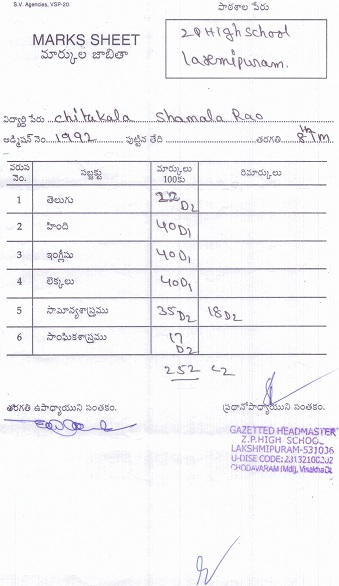 S.V. Agencies, VSP-20.
పాఠశాల పేరు
MARKS SHEET
మార్కుల జాబితా
Z P High school
Laxmipuram.
విద్యార్థి పేరు chitukala Shamala Rao
అడ్మిషన్ నెం. 1992 పుట్టిన తేది తరగతి 8th Tm
వరుస నెం. సబ్జక్టు మార్కులు 100కు రిమార్కులు
1 తెలుగు 22 D2
2 హింది 40 D1
3 ఇంగ్లీషు 40 D1
4 లెక్కలు 40 D1
5 సామాన్యశాస్త్రము 35 D2 18 D2
6 సాంఘికశాస్త్రము 17 D2
252 C2
తరగతి ఉపాధ్యాయుని సంతకం. ప్రధానోపాధ్యాయుని సంతకం.
GAZETTED HEADMASTER
Z.P.HIGH SCHOOL
LAKSHMIPURAM-531036
U-DISE CODE:
CHODAVARAM (Mdl), Visakha Dt.